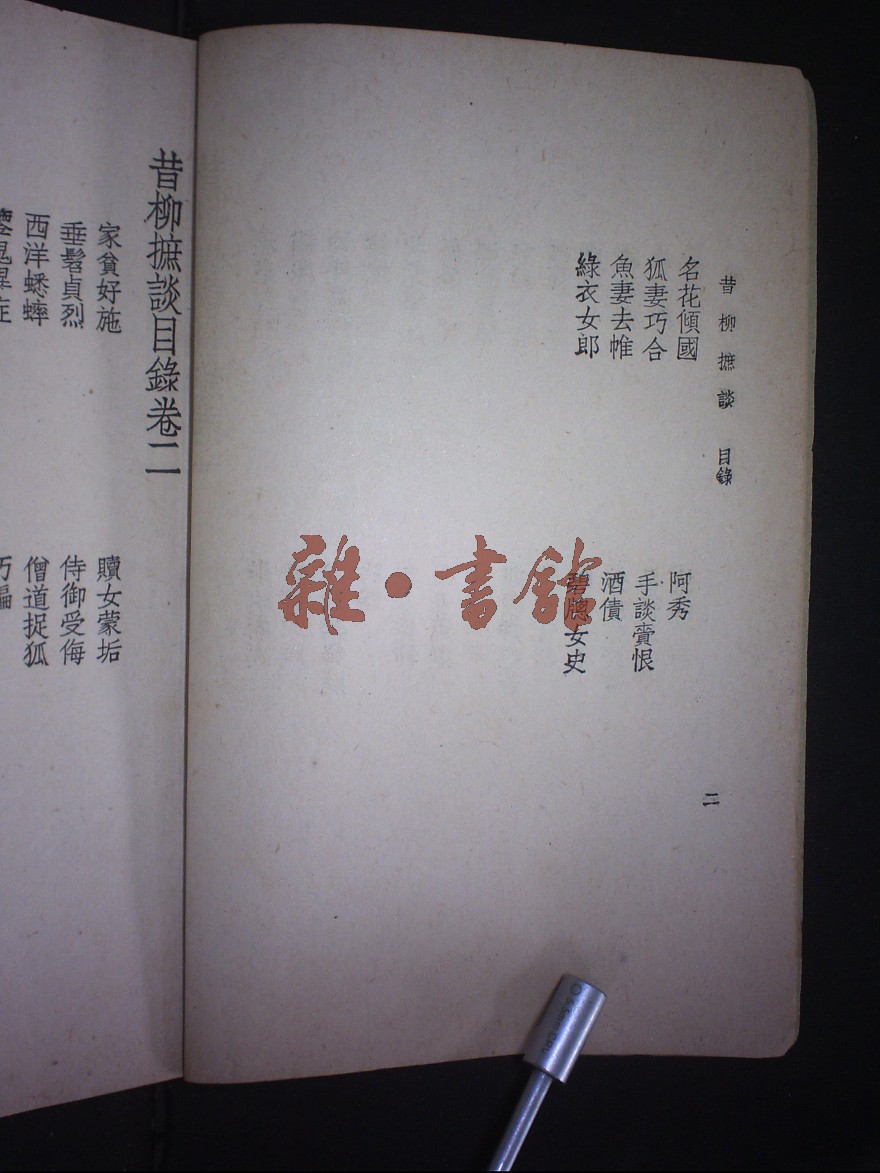 昔柳摭談 目錄
名花傾國 阿秀
狐妻巧合 手談賫恨
魚妻去帷 酒債
綠衣女郎 碧牕女史
二
昔柳摭談目錄卷二
家貧好施 贖女蒙垢
垂髫貞烈 侍御受侮
西洋蟋蟀 僧道捉狐
雜·書館